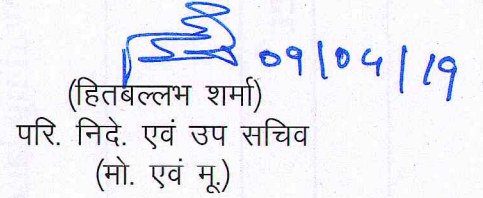 09/04/19
(हितबल्लभ शर्मा)
परि. निदे. एवं उप सचिव
(मो. एवं मू.)